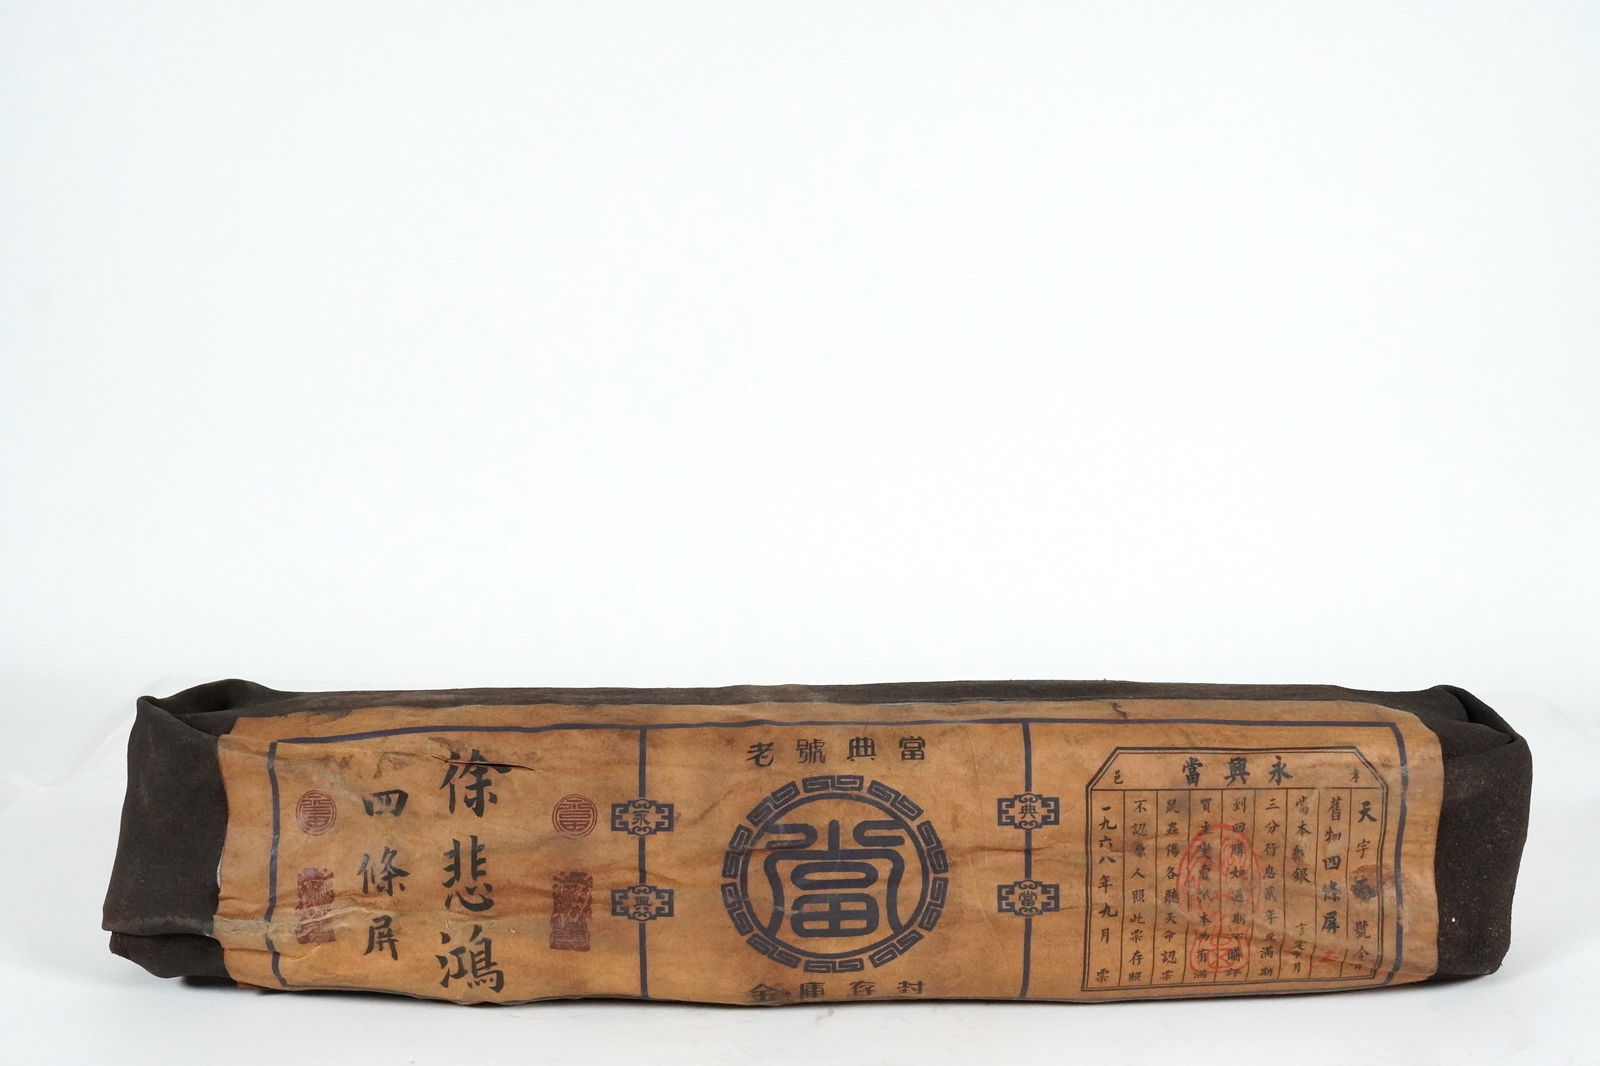 徐悲鴻
四條屏
老號典當
當
金庫存封
永
興
典
當
永興當
天字 號今
舊物四條屏
當本紋銀 言定 月
三分行息貳年為滿期
到回贖如過期不贖許
買主變賣抵本物有滿
鼠蟲傷各聽天命認票
不認票人照此票存照
一九六八年九月 票